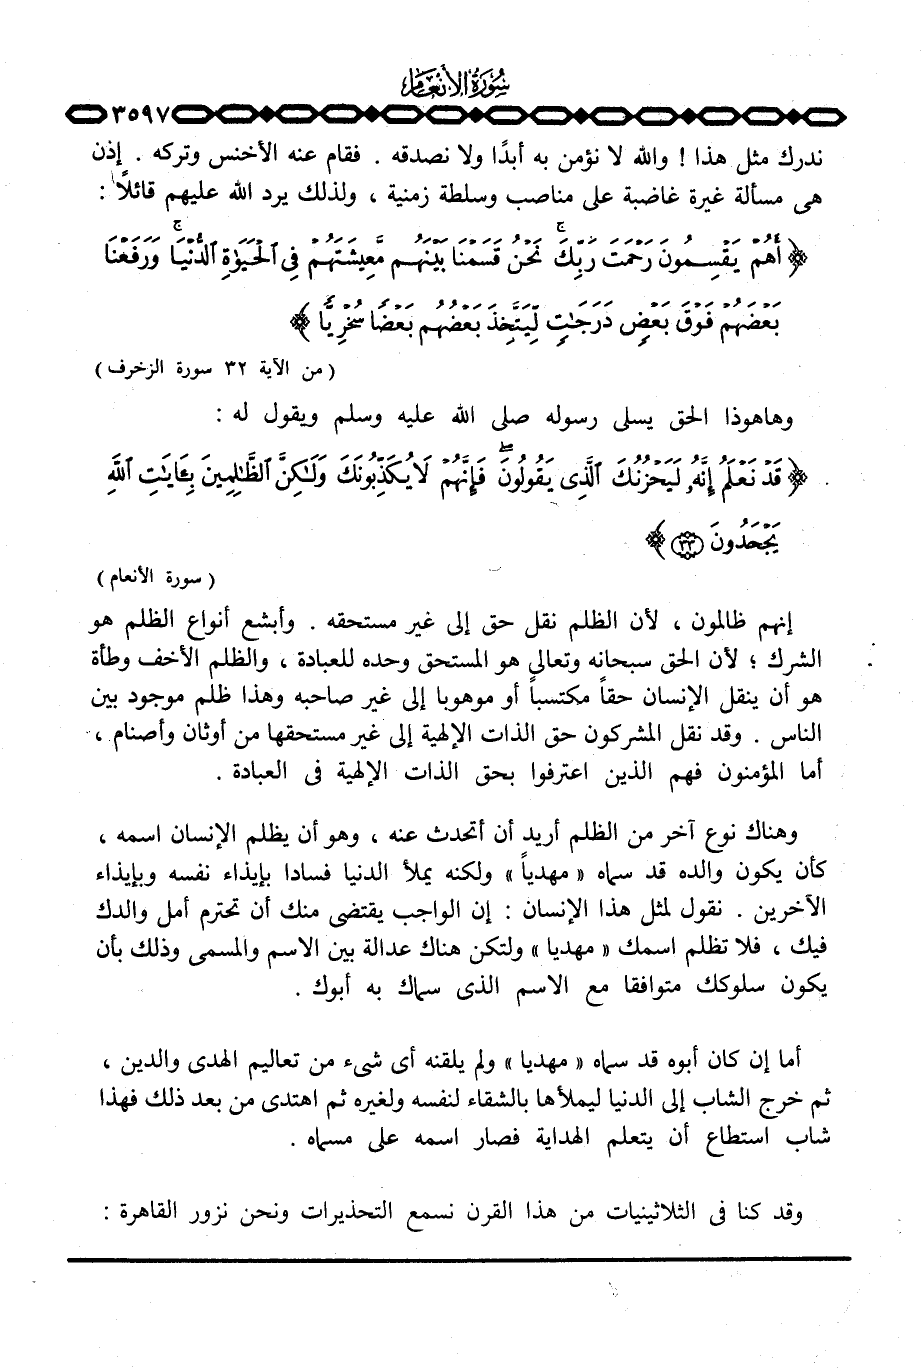 سُورَةُ الأَنْعَام
٣٥٩٧
ندرك مثل هذا ! والله لا نؤمن به أبدًا ولا نصدقه . فقام عنه الأخنس وتركه . إذن
هى مسألة غيرة غاضبة على مناصب وسلطة زمنية ، ولذلك يرد الله عليهم قائلاً :
﴿ أَهُمْ يَقْسِمُونَ رَحْمَتَ رَبِّكَ ۚ نَحْنُ قَسَمْنَا بَيْنَهُم مَّعِيشَتَهُمْ فِى ٱلْحَيَوٰةِ ٱلدُّنْيَا ۚ وَرَفَعْنَا
بَعْضَهُمْ فَوْقَ بَعْضٍ دَرَجَٰتٍ لِّيَتَّخِذَ بَعْضُهُم بَعْضًا سُخْرِيًّا ﴾
( من الآية ٣٢ سورة الزخرف )
وهاهوذا الحق يسلى رسوله صلى الله عليه وسلم ويقول له :
﴿ قَدْ نَعْلَمُ إِنَّهُۥ لَيَحْزُنُكَ ٱلَّذِى يَقُولُونَ ۖ فَإِنَّهُمْ لَا يُكَذِّبُونَكَ وَلَٰكِنَّ ٱلظَّٰلِمِينَ بِـَٔايَٰتِ ٱللَّهِ
يَجْحَدُونَ ٣٣ ﴾
( سورة الأنعام )
إنهم ظالمون ، لأن الظلم نقل حق إلى غير مستحقه . وأبشع أنواع الظلم هو
الشرك ؛ لأن الحق سبحانه وتعالى هو المستحق وحده للعبادة ، والظلم الأخف وطأة
هو أن ينقل الإنسان حقاً مكتسباً أو موهوبا إلى غير صاحبه وهذا ظلم موجود بين
الناس . وقد نقل المشركون حق الذات الإلهية إلى غير مستحقها من أوثان وأصنام ،
أما المؤمنون فهم الذين اعترفوا بحق الذات الإلهية فى العبادة .
وهناك نوع آخر من الظلم أريد أن أتحدث عنه ، وهو أن يظلم الإنسان اسمه ،
كأن يكون والده قد سماه « مهدياً » ولكنه يملأ الدنيا فسادا بإيذاء نفسه وبإيذاء
الآخرين . نقول لمثل هذا الإنسان : إن الواجب يقتضى منك أن تحترم أمل والدك
فيك ، فلا تظلم اسمك « مهديا » ولتكن هناك عدالة بين الاسم والمسمى وذلك بأن
يكون سلوكك متوافقا مع الاسم الذى سماك به أبوك .
أما إن كان أبوه قد سماه « مهديا » ولم يلقنه أى شىء من تعاليم الهدى والدين ،
ثم خرج الشاب إلى الدنيا ليملأها بالشقاء لنفسه ولغيره ثم اهتدى من بعد ذلك فهذا
شاب استطاع أن يتعلم الهداية فصار اسمه على مسماه .
وقد كنا فى الثلاثينيات من هذا القرن نسمع التحذيرات ونحن نزور القاهرة :